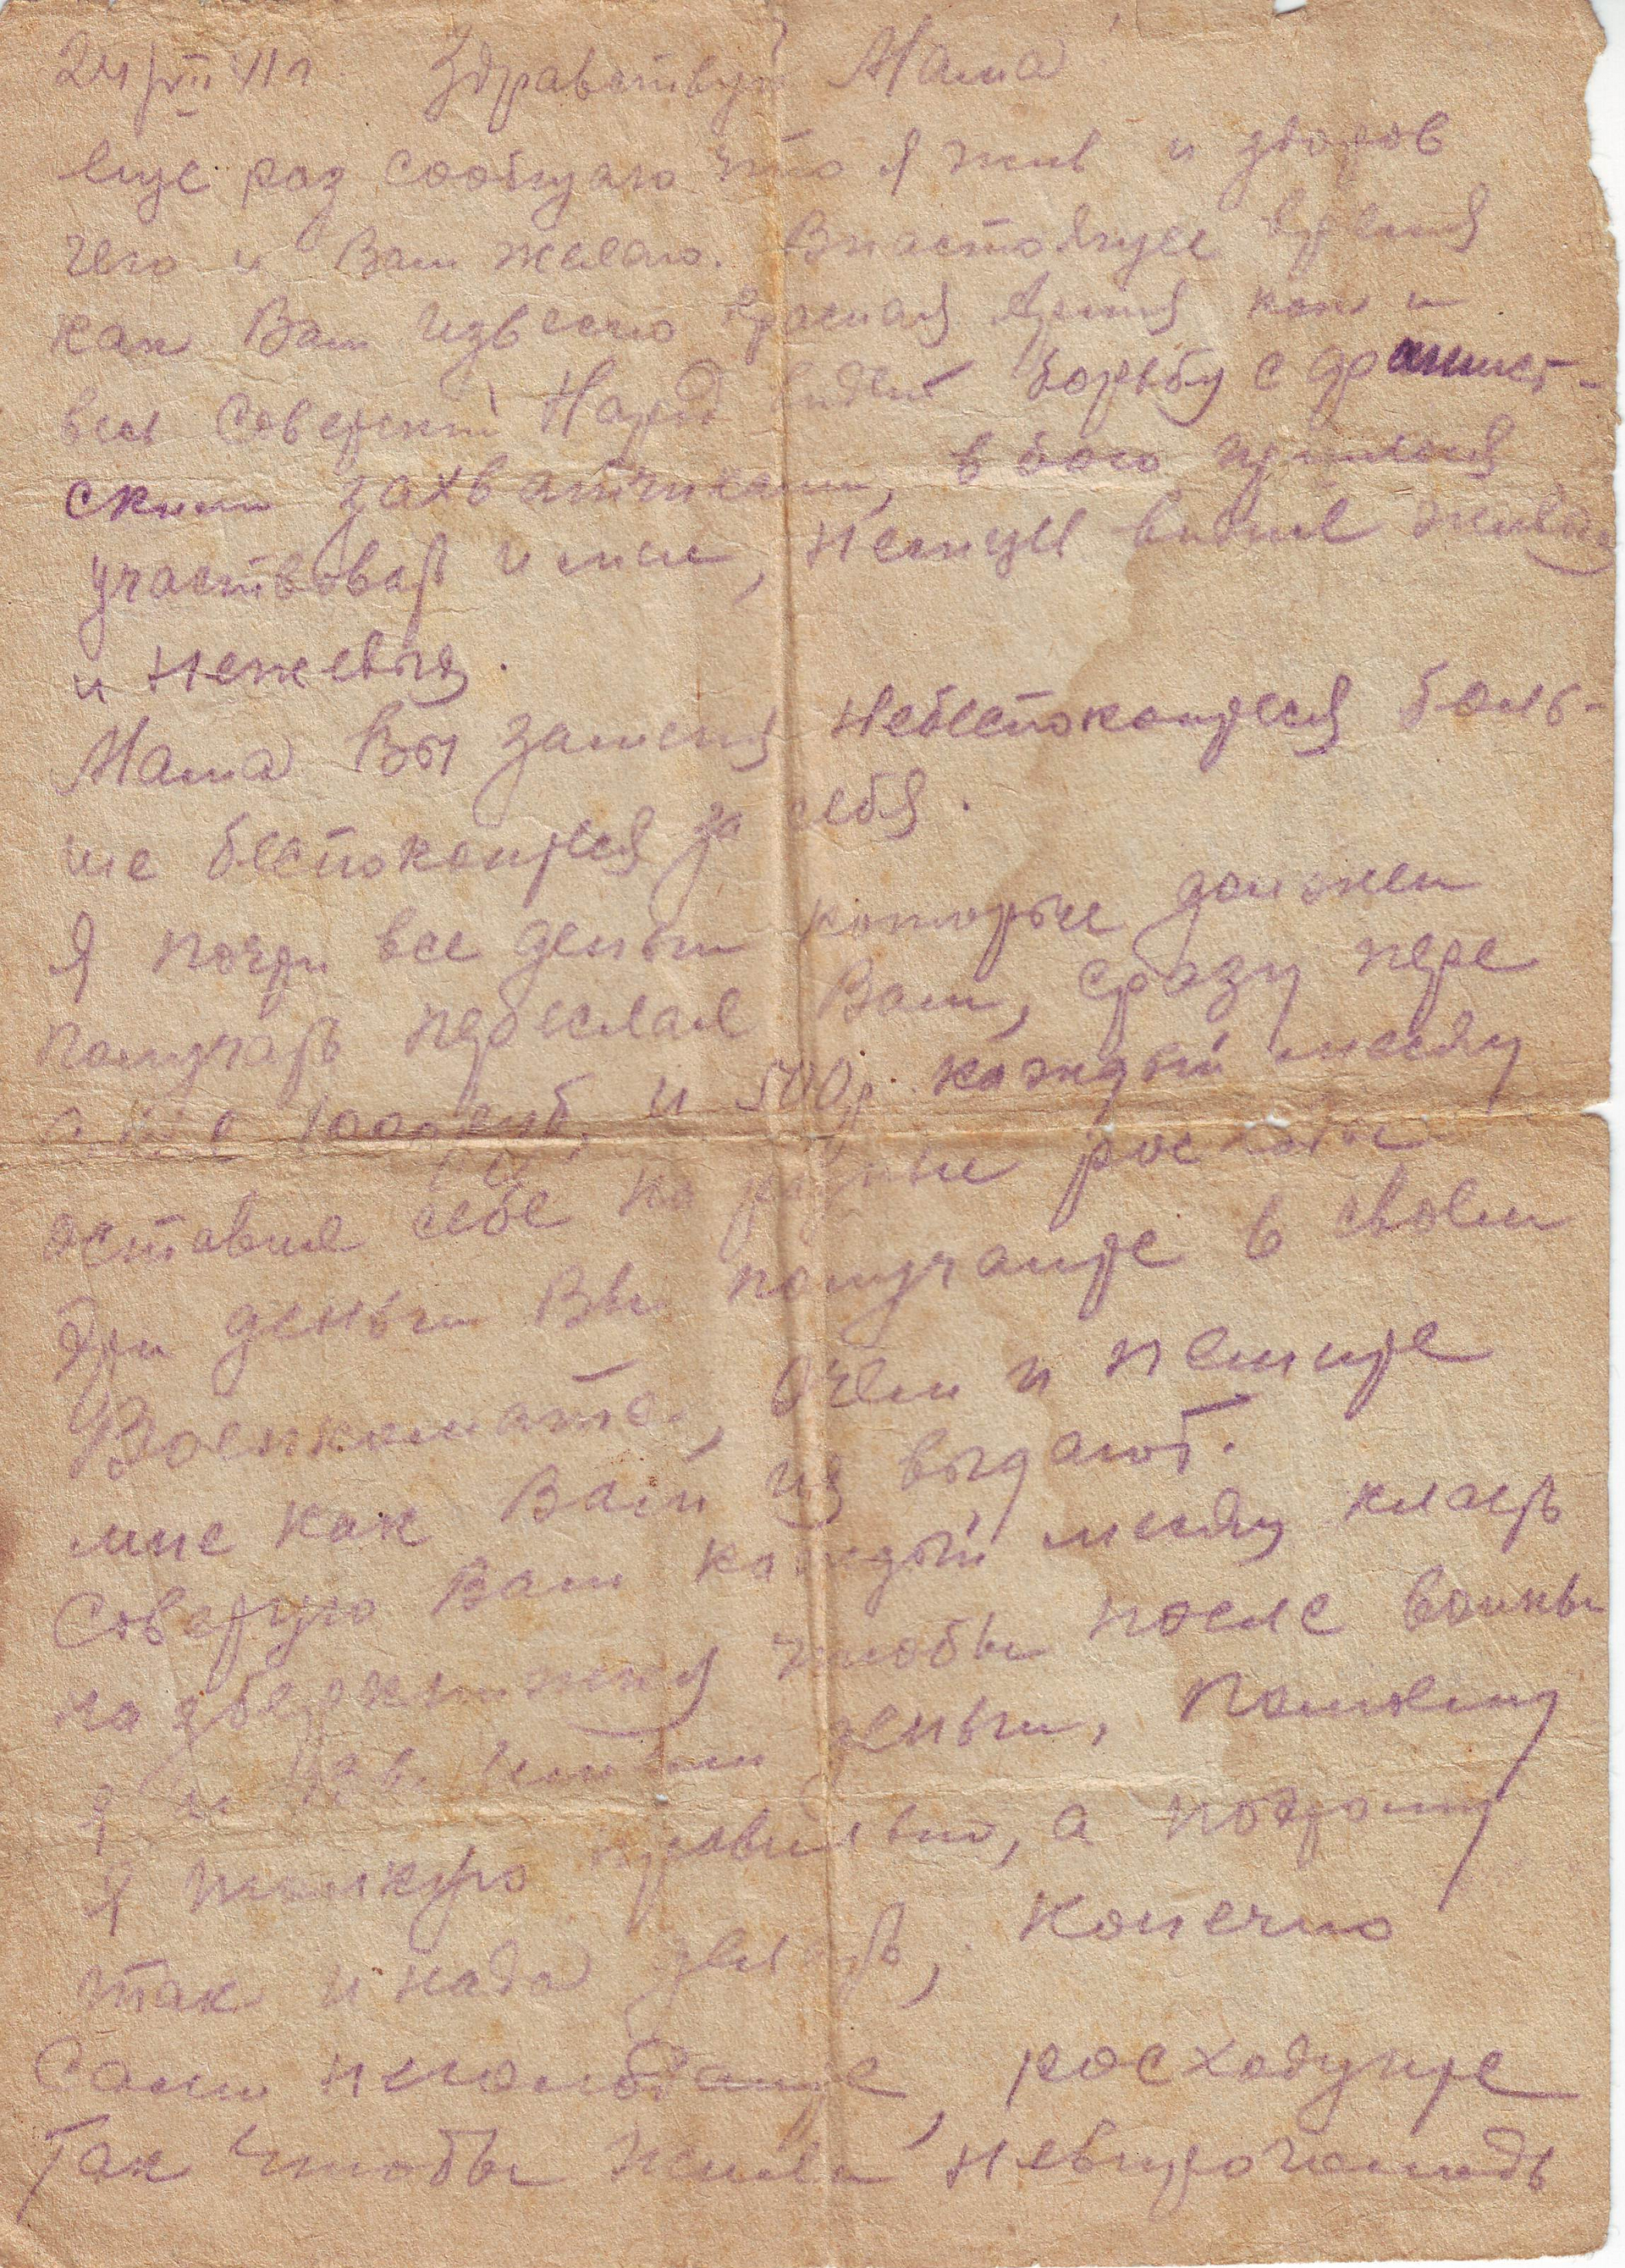 24/VII 41г. Здравствуй Мама
еще раз сообщаю что я жив и здоров
чего и Вам желаю. Внастоящее время
как Вам извесно Красная Армия как и
весь Советский Народ видет борьбу с фашист-
скими захватчиками, в бою пришлося
участвовать и мне, Немцы видил живых
и Неживых.
Мама Вы заменя Небеспокойтеся боль-
ше беспокойтеся за себя.
Я почти все деньги которые должен
получать переслал Вам, сразу пере
1000 руб. и 500р. каждый месяц
оставил себе на разные росходы
Эти деньги Вы получайте в своем
Военкомате, очем и пешите
мне как Вам их выдают.
Советую Вам каждый месяц класть
на збережения чтобы после воины
я и деньги, Помоему
Я толкую правильно, а поэтому
так и нада делать, Конечно
Сами неголодайте, росходуйте
Так чтобы жили невпроголодь